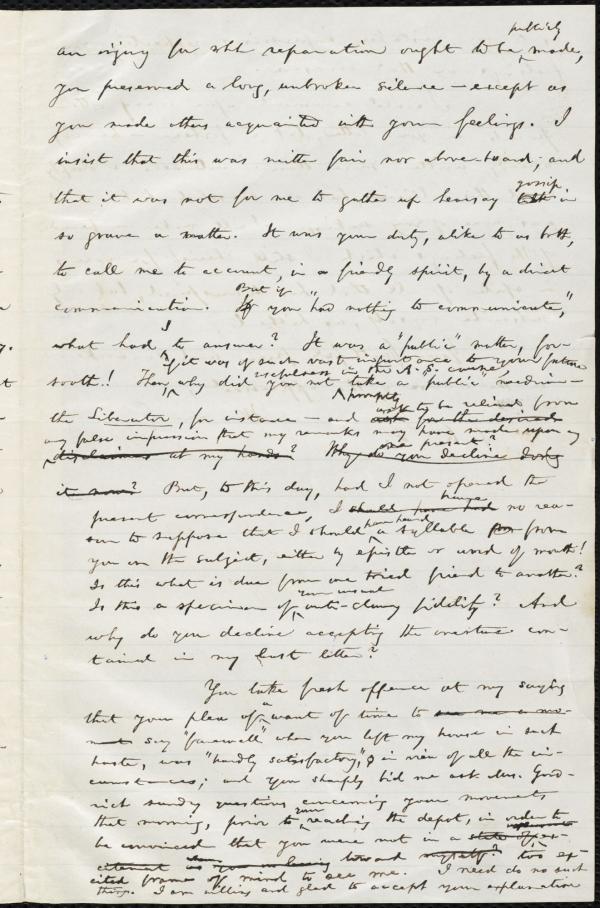 publicly
an injury for wh'h reparation ought to be made,
you preserved a long, unbroken silence — except as
you made others acquainted with your feelings. I
insist that this was neither fair nor above-board; and
gossip
that it was not for me to gather up hearsay in
so grave a matter. It was your duty, alike to us both,
to call me to account, in a friendly spirit, by a direct
But if
communication. If you "had nothing to communicate,"
what had I to answer? It was a "public" matter, for-
if it was of such vast importance to your future
usefulness in the A. S. cause,
sooth! Then, why did you not take a "public" medium—
promptly
the Liberator, for instance — and ask for the desired
ask to be relieved from
any false impression that my remarks may have made upon any
one present?
disclaimer at my hands? Why do you decline doing
it now? But, to this day, had I not opened the
present correspondence, I should have had no rea-
have heard
son to suppose that I should a syllable from
you on the subject, either by epistle or word of mouth!
Is this what is due from one tried friend to another?
your usual
Is this a specimen of anti-slavery fidelity? And
why do you decline accepting the overture con-
tained in my last letter?
You take fresh offence at my saying
that your plea of a want of time to see me a mo-
ment say "farewell" when you left my house in such
haste, was "hardly satisfactory," in view of all the cir-
cumstances; and you sharply bid me ask Mrs. Good-
rich sundry questions concerning your movements
your
that morning, prior to reaching the depot, in order to
be convinced that you were not in a state of ex-
citement toward myself? too ex-
cited frame of mind to see me. I need do no such
thing. I am willing and glad to accept your explanation